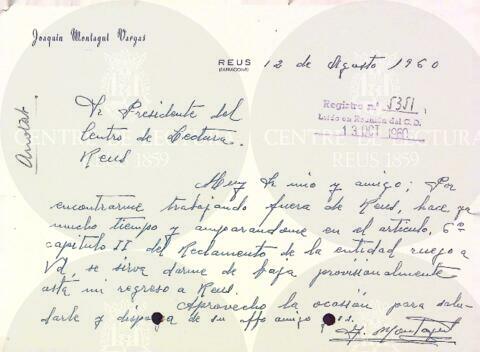 Joaquín Montagut Vargas
REUS
(TARRAGONA)
12 de Agosto 1960
Anotat.
Sr Presidente del
Centro de Lectura.
Reus
Registro nº 5351.
Leído en Reunión del C.D.
13 OCT 1960
CENTRE DE LECTURA
REUS 1859
Muy Sr mio y amigo; Por
encontrarme trabajando fuera de Reus, hace ya
mucho tiempo y amparandome en el articulo, 6º
capitulo II del Reclamento de la entidad ruego a
Vd, se sirva darme de baja provisionalmente
asta mi regreso a Reus.
Aprovecho la ocasión para salu-
darle y disponga de su affo amigo
J. Montagut